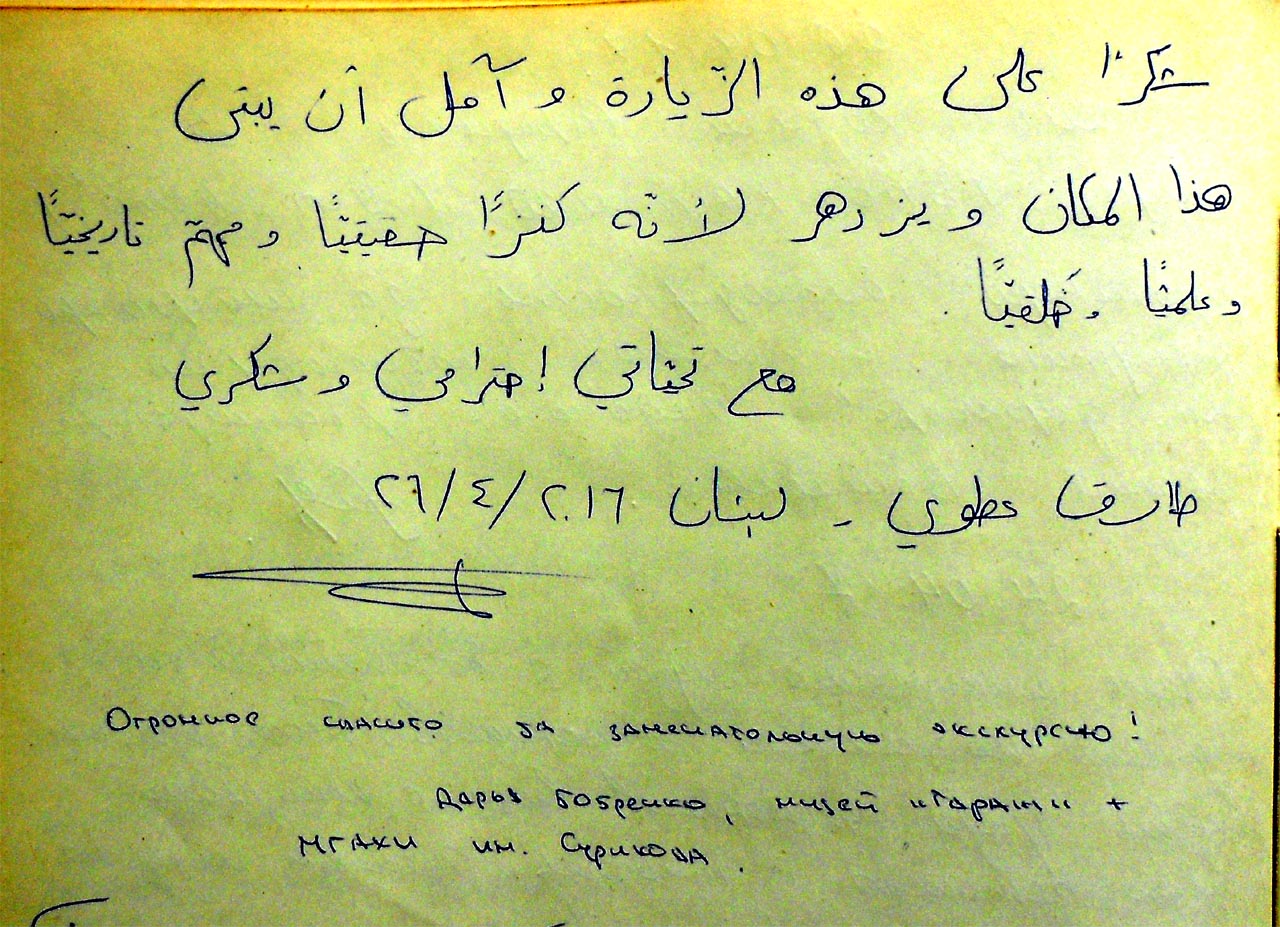 شكرًا على هذه الزّيارة و آمل أن يبقى
هذا المكان ويزدهر لأنّه كنزًا حقيقيًّا ومهمّ تاريخيًّا
وعلميًّا وخلقيًّا.
مع تحيّاتي إحترامي وشكري
طارق عطوي - لبنان ٢٦/٤/٢٠١٦
Огромное спасибо за замечательную экскурсию!
Дарья Бобренко, музей "Гараж" +
МГАХИ им. Сурикова.